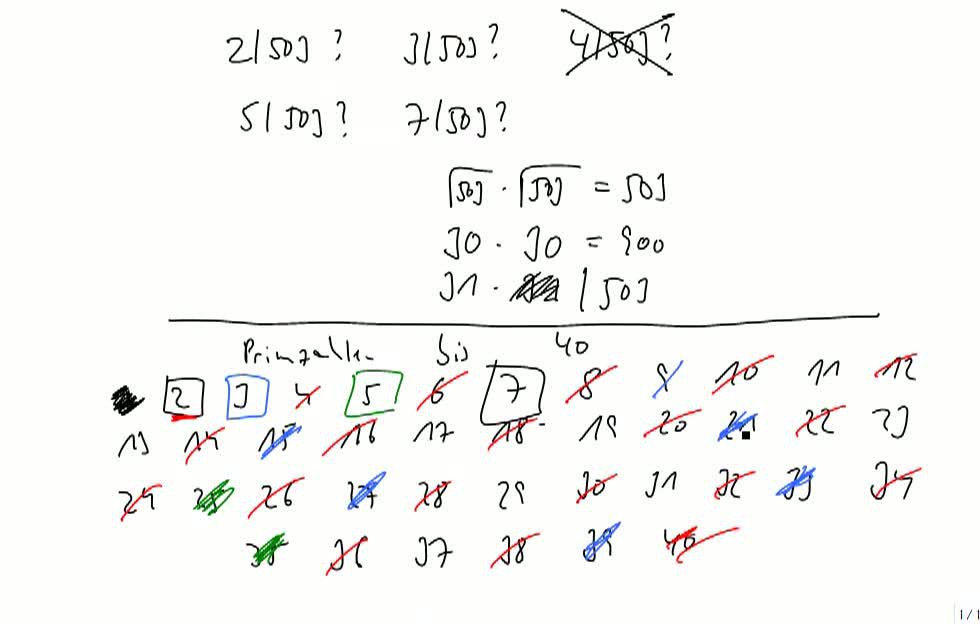 2|503 ? 3|503 ? 4|503 ?
5|503 ? 7|503 ?
√503 · √503 = 503
30 · 30 = 900
31 · | 503
Primzahlen bis 40
2 3 4 5 6 7 8 9 10 11 12
13 14 15 16 17 18 19 20 21 22 23
24 25 26 27 28 29 30 31 32 33 34
35 36 37 38 39 40
1/1